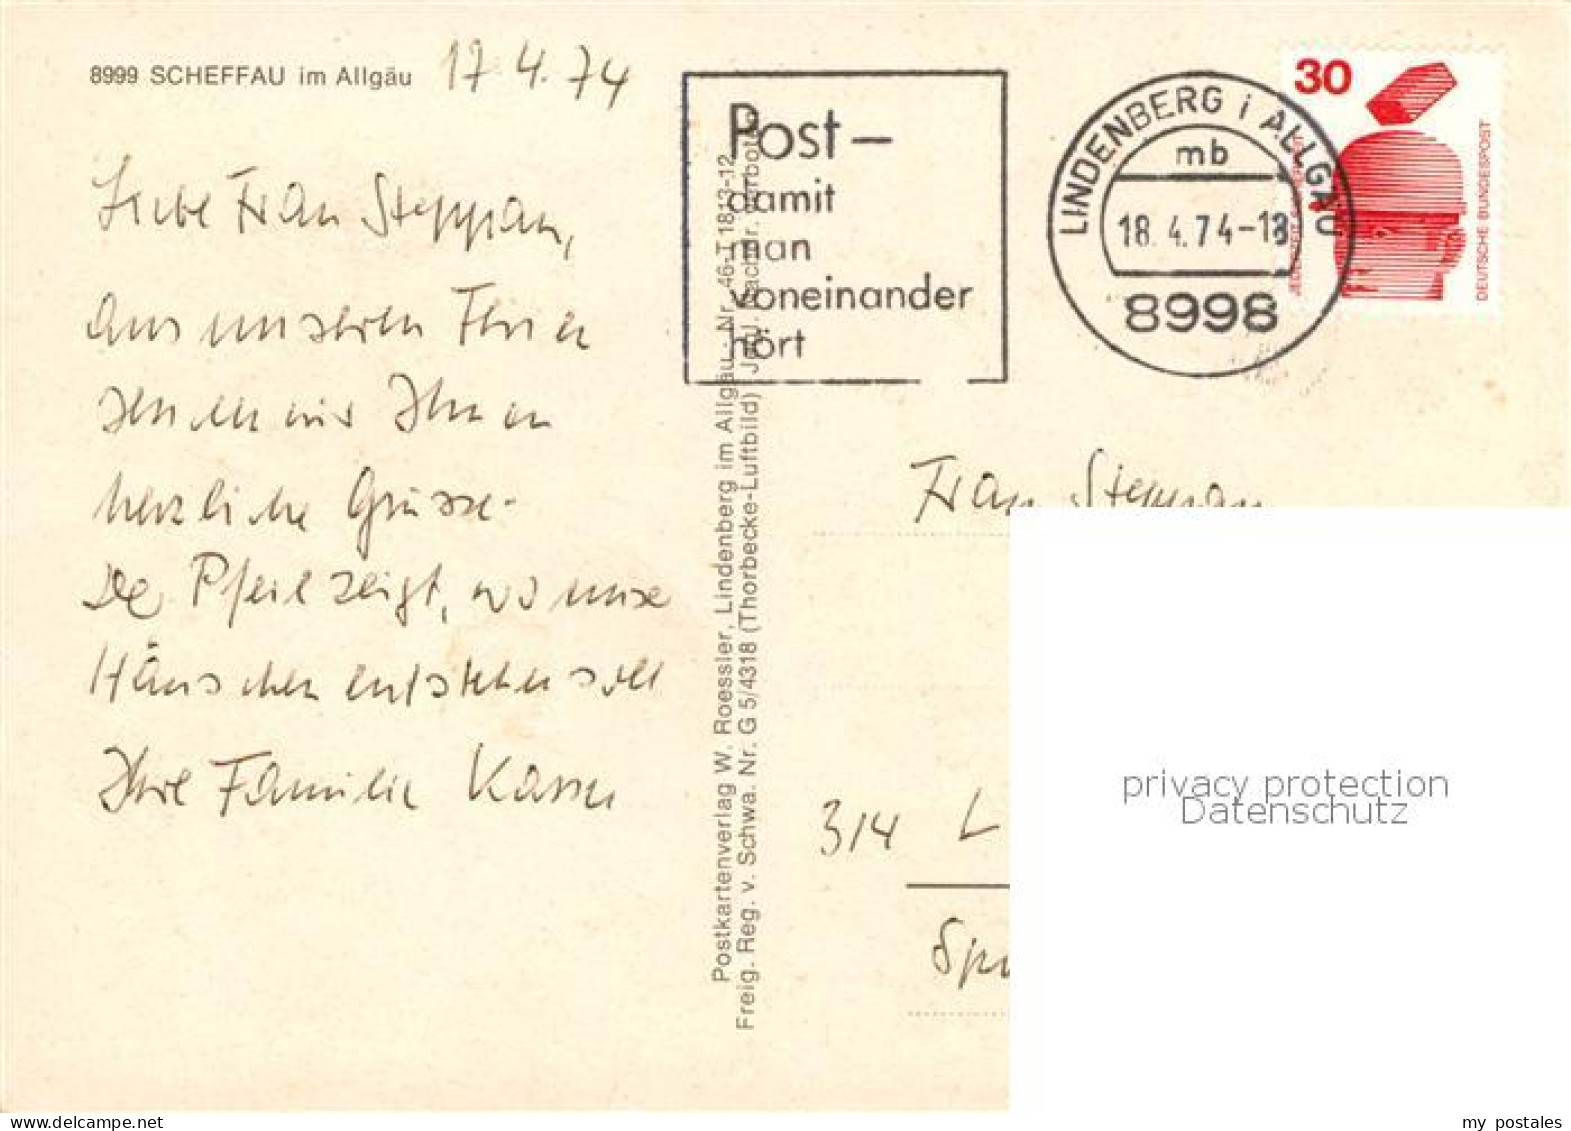 8999 SCHEFFAU im Allgäu 17.4.74
Liebe Frau Steppan,
aus unseren Ferien
senden wir Ihnen
herzliche Grüsse.
Der Pfeil zeigt, wo unser
Häuschen entstehen soll
Ihre Familie
Post –
damit
man
voneinander
hört
LINDENBERG i ALLGÄU
mb
18.4.74-18
8998
30
DEUTSCHE BUNDESPOST
Postkartenverlag W. Roessler, Lindenberg im Allgäu - Nr. 46-T 1813-12
Freig. Reg. v. Schwa. Nr. G 5/4318 (Thorbecke-Luftbild)
Frau Steppan
314 L
privacy protection
Datenschutz
my postales